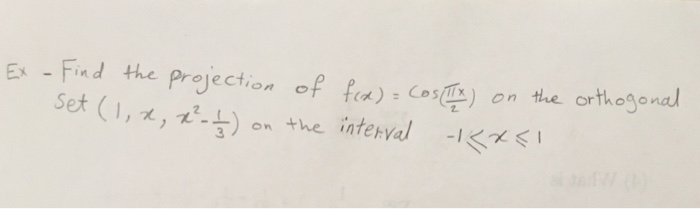 Ex - Find the projection of f(x) = Cos(πx/2) on the orthogonal
Set (1, x, x² - 1/3) on the interval -1 ⩽ x ⩽ 1